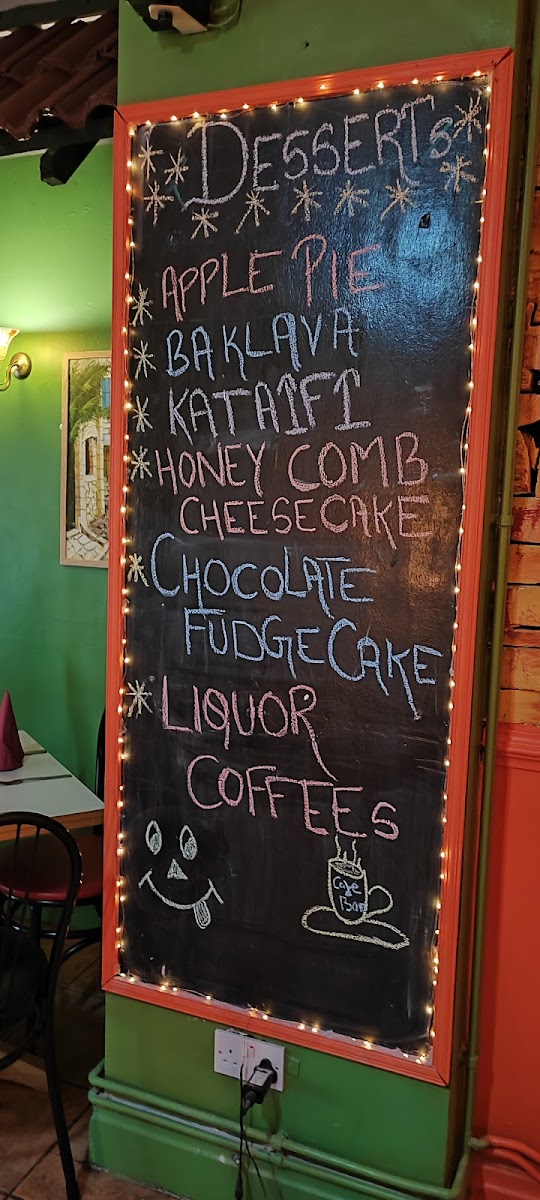 DESSERTS
APPLE PIE
BAKLAVA
KATAIFI
HONEY COMB
CHEESECAKE
CHOCOLATE
FUDGE CAKE
LIQUOR
COFFEES
Cafe
Bar